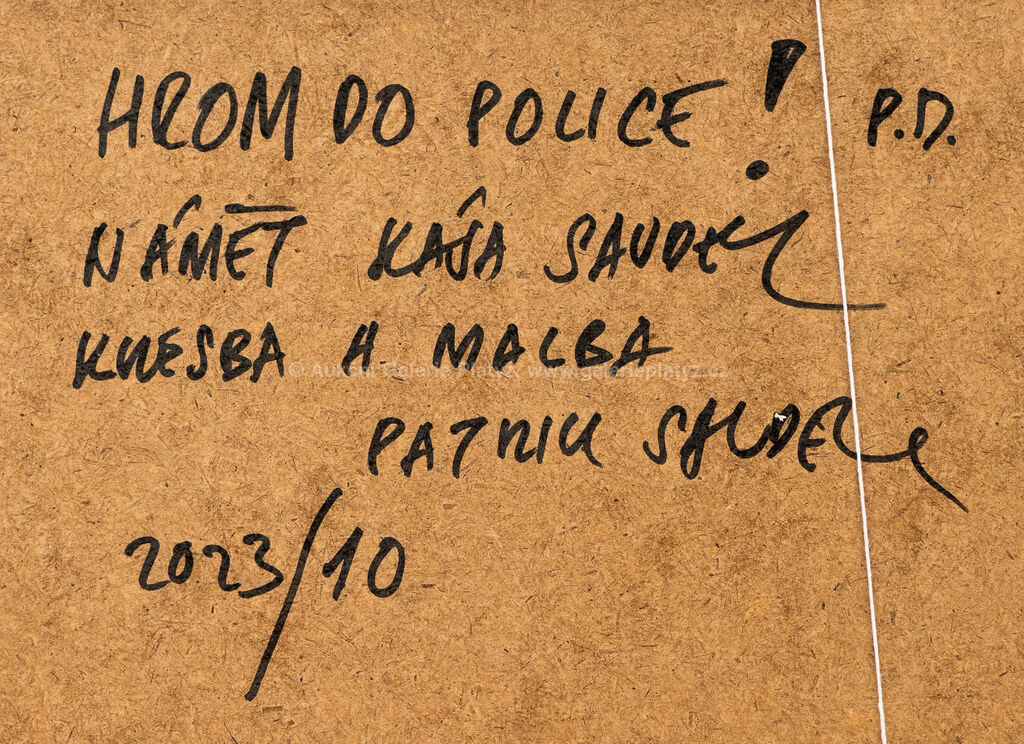 HROM DO POLICE! P.D.
NÁMĚT KÁJA SAUDEK
KRESBA A MALBA
© Aukční Galerie Platýz, www.galerieplatyz.cz
PATRIK SAUDEK
2023/10